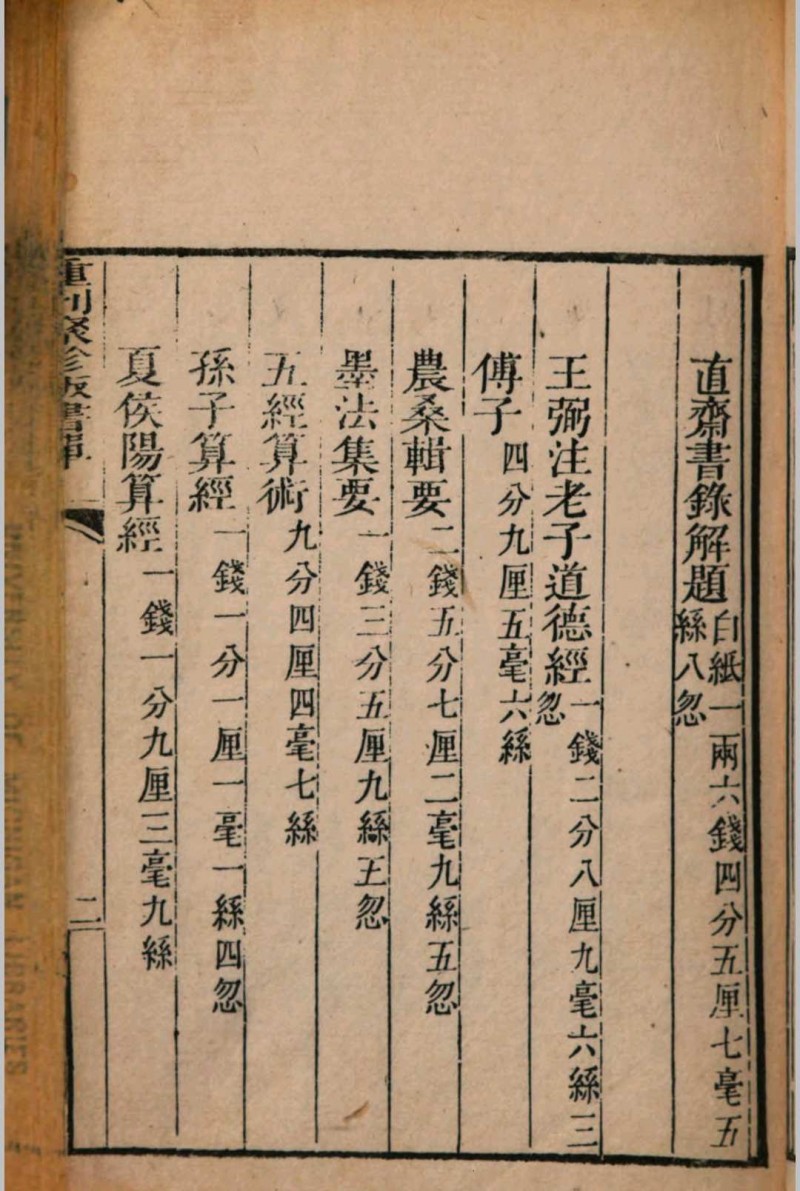 直齋書錄解題白紙一兩六錢四分五厘七毫五
絲八忽
王弼注老子道德經一錢二分八厘九毫六絲三
忽
傅子四分九厘五毫六絲
農桑輯要二錢五分七厘二毫九絲五忽
墨法集要一錢三分五厘九絲五忽
五經算術九分四厘四毫七絲
孫子算經一錢一分一厘一毫一絲四忽
夏侯陽算經一錢一分九厘三毫九絲
重刊聚珍版書單
二